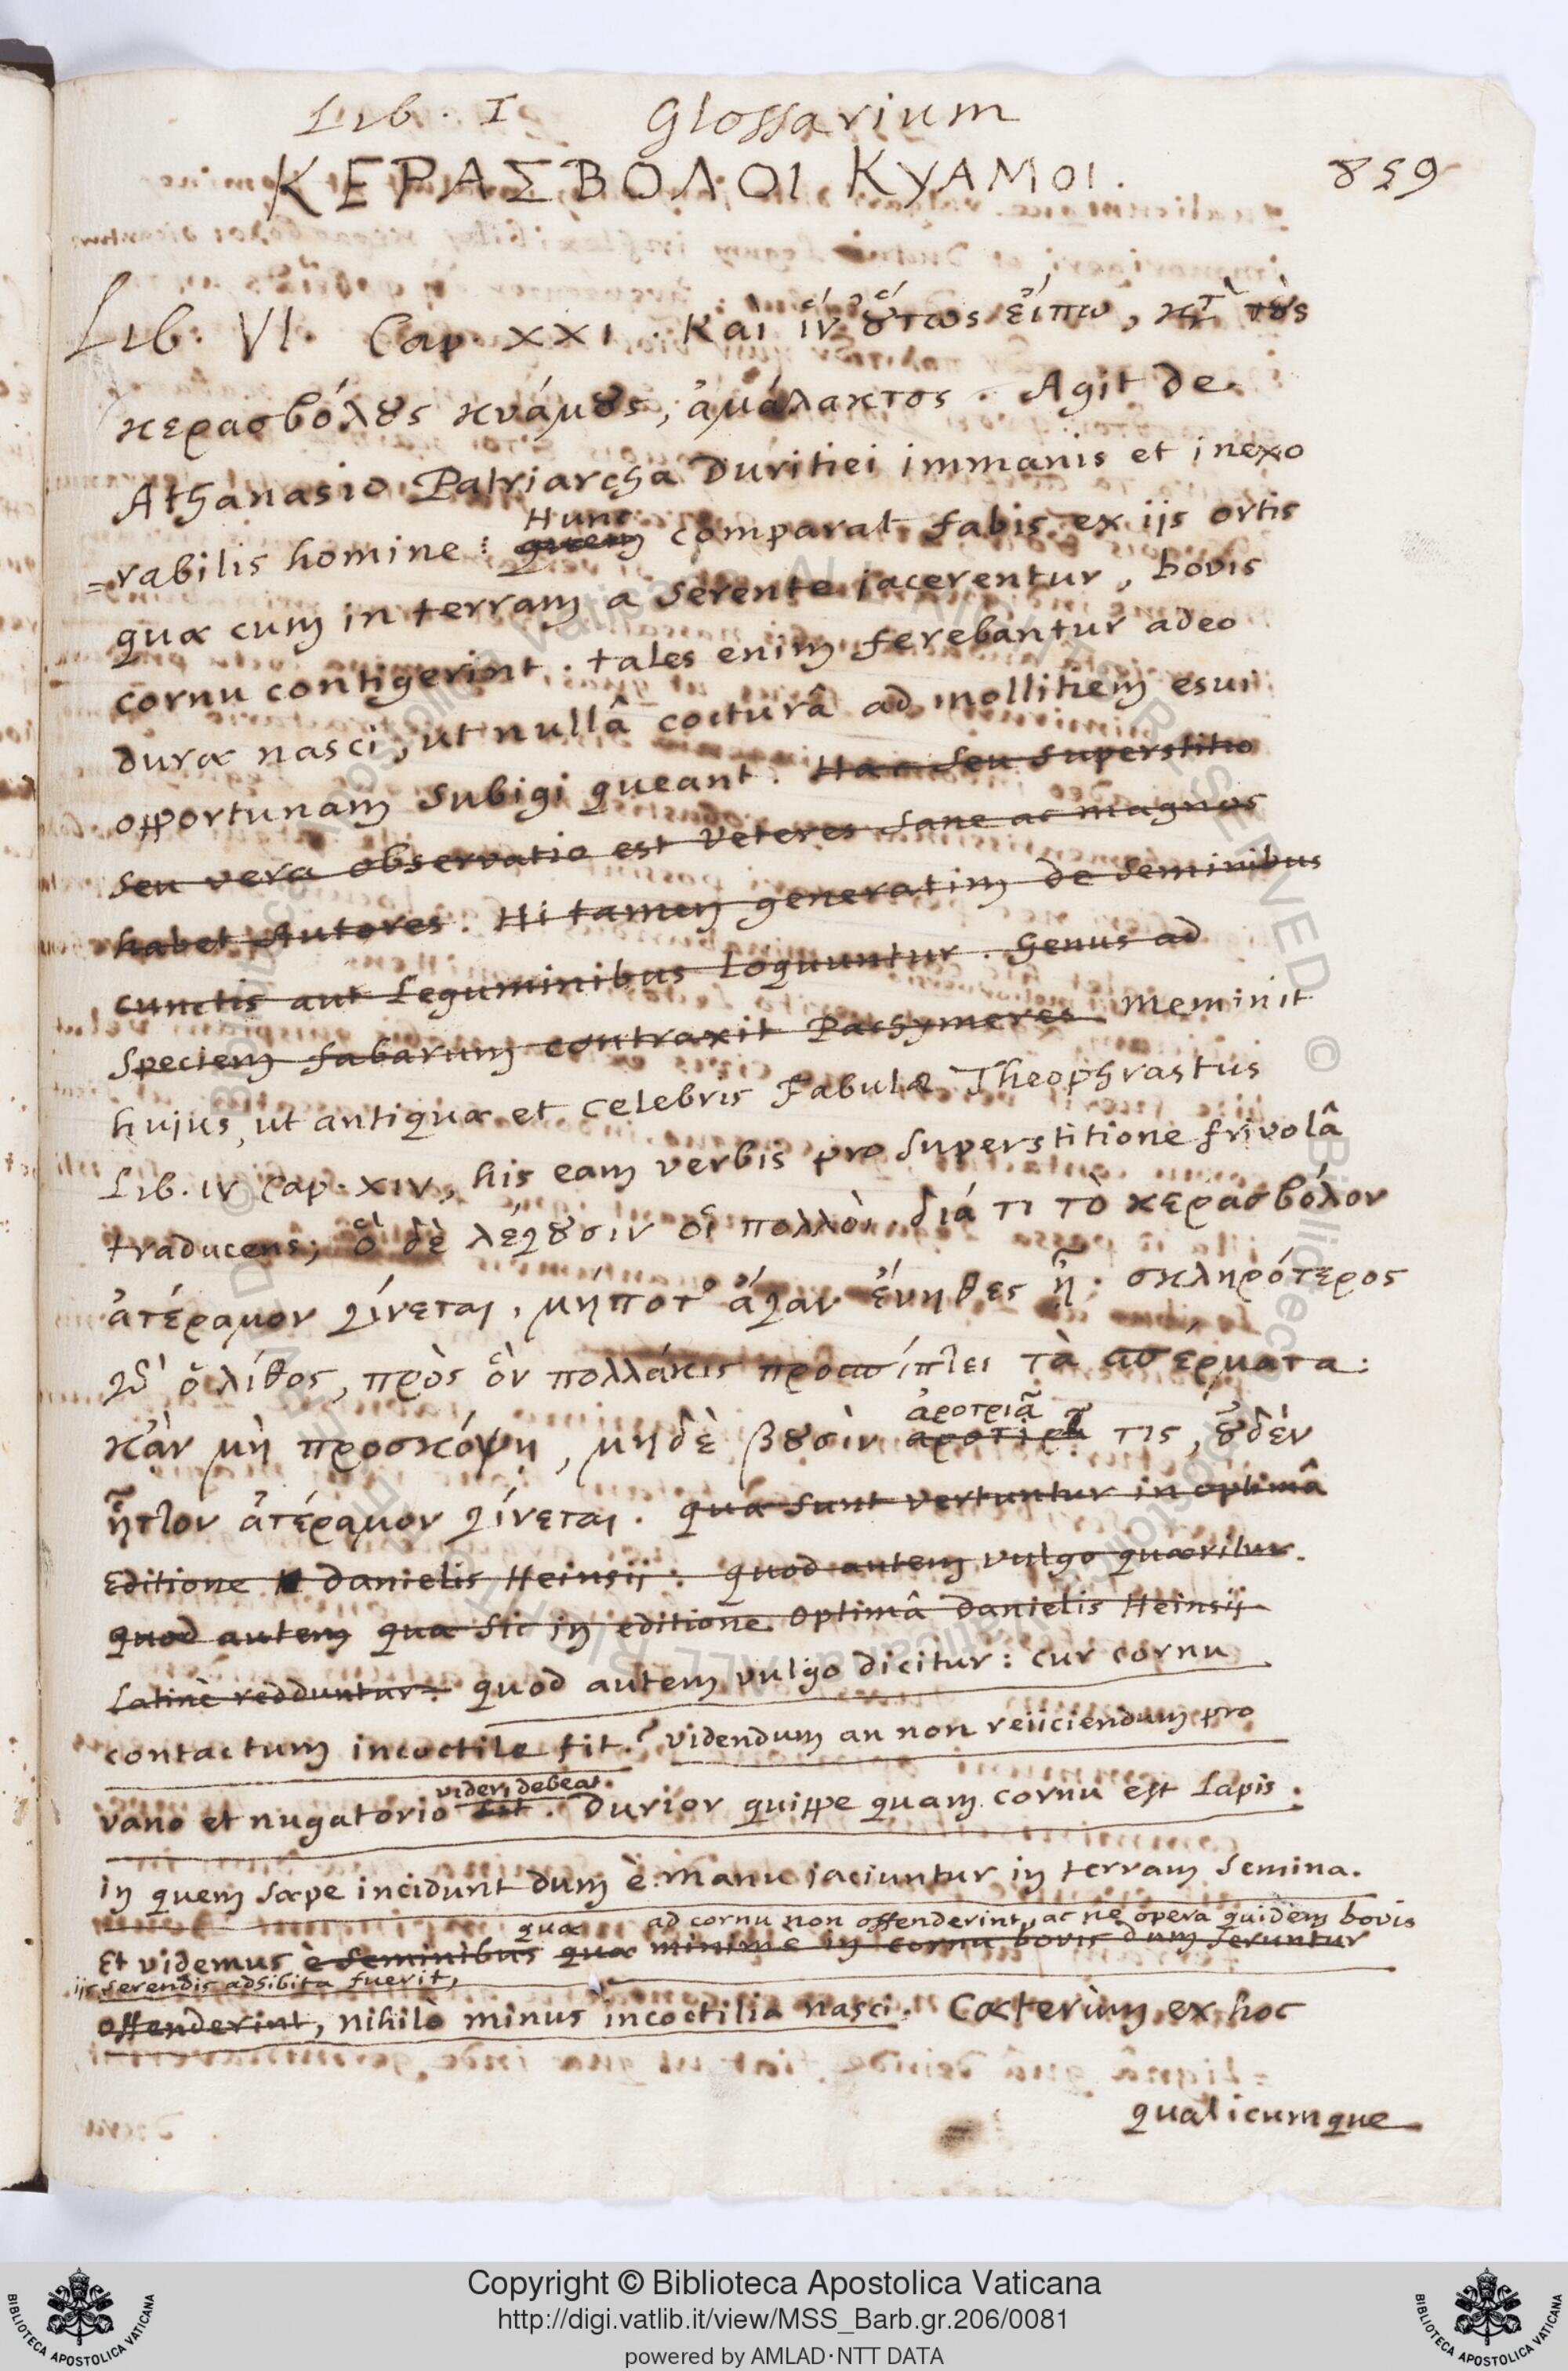 Lib. I Glossarium
ΚΕΡΑΣΒΟΛΟΙ ΚΥΑΜΟΙ. 859
Lib. VI. Cap XXI. Καὶ ἵν' ȣ̔́τως εἴπω, κτ̀ τȣ̀ς
κερασβόλȣς κυάμȣς, ἀμάλακτος. Agit de
Athanasio Patriarcha duritiei immanis et inexo
=rabilis homine: Hunc quem comparat fabis ex ijs ortis
quæ cum in terram a serente jacerentur, bovis
cornu contigerint. tales enim ferebantur adeo
duræ nasci, ut nullâ cocturâ ad mollitiem esui
opportunam subigi queant. Hac seu superstitio
seu vera observatio est Veteres sane ac magnos
habet Autores. Hi tamen generatim de seminibus
cunctis aut Leguminibus loquuntur. Genus ad
speciem fabarum contraxit Pachymeres. Meminit
hujus, ut antiquæ et celebris Fabulæ Theophrastus
Lib. IV Cap. XIV, his eam verbis pro superstitione frivolâ
traducens; ὃ δὲ λέγȣσιν οἱ πολλοὶ, διά τι τὸ κερασβόλον
ἀτέραμον γίνεται, μήποτ' ἄγαν ἔυηθες ᾖ. σκληρότερος
γδ' ὁ λίθος, πρὸς ὃν πολλάκις προσπίπτει τὰ σπέρματα:
κἂν μὴ προσκόψη, μηδὲ βȣσὶν ἀροτριᾶ τις, ȣ̓δὲν
ἧττον ἀτέραμον γίνεται. quæ sunt vertuntur in optimâ
editione Danielis Heinsij: quod autem vulgo quæritur.
quod autem quæ sic in editione optimâ Danielis Heinsij
Latinè redduntur: quod autem vulgo dicitur: cur cornu
contactum incoctile fit? videndum an non reiiciendum pro
vano et nugatorio videri debeat. sit. Durior quippe quam cornu est Lapis.
in quem sæpe incidunt dum è manu jaciuntur in terram semina.
quæ ad cornu non offenderint, ac ne opera quidem bovis
Et videmus è seminibus quæ minime in cornu bovis dum seruntur
ijs serendis adhibita fuerit,
offenderint, nihilò minus incoctilia nasci. Cæterùm ex hoc
qualicumque
Copyright © Biblioteca Apostolica Vaticana
http://digi.vatlib.it/view/MSS_Barb.gr.206/0081
powered by AMLAD·NTT DATA